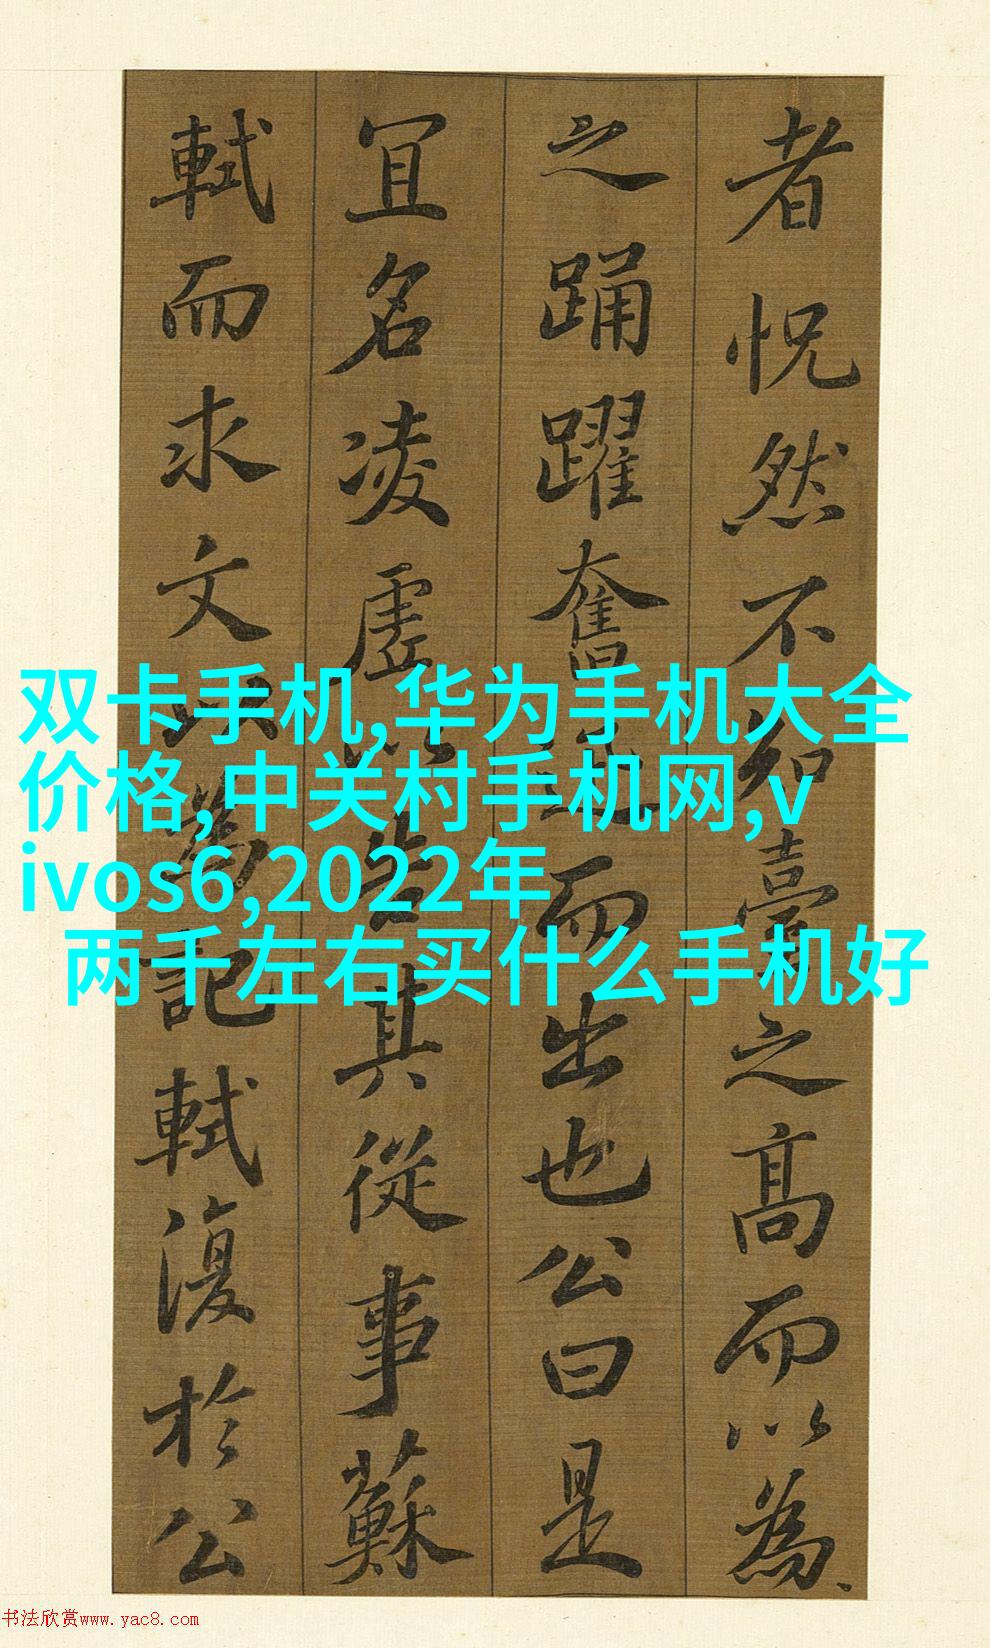 者怳然不知臺之髙而以為
之踊躍奮迅而出也公曰是
冝名凌虗以告其從事蘇
軾而求文以為記軾復於公
双卡手机,华为手机大全
价格,中关村手机网,v
ivos6,2022年
两千左右买什么手机好
书法欣赏www.yac8.com